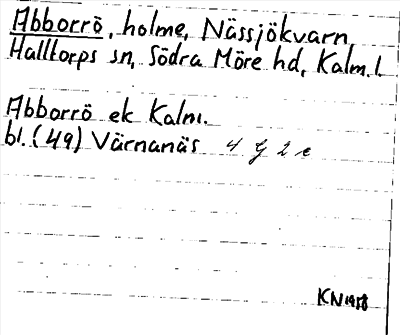 Abborrö, holme, Nässjökvarn
Halltorps sn, Södra Möre hd, Kalm. l.
Abborrö ek Kalm.
bl. (49) Värnanäs 4 G 2 e
KN 1958